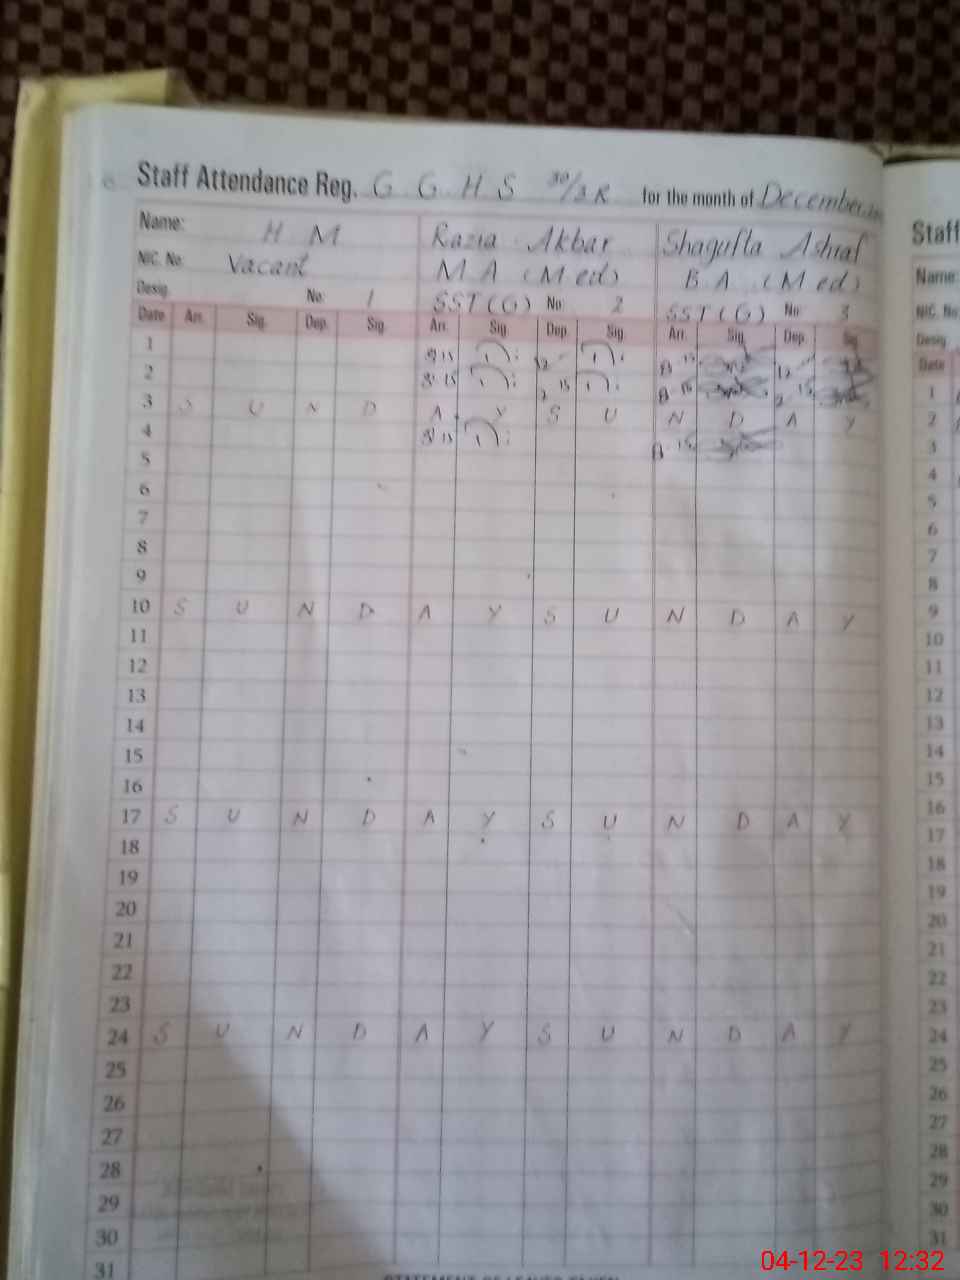 Staff Attendance Reg. G G H S 30/3R for the month of December
Name: H M Razia Akbar Shagufta Ashraf
NIC. No. Vacant M A (M ed) B A (M ed)
Desig. No: 1 SST (G) No: 2 SST (G) No: 3
Date Arr. Sig. Dep. Sig. Arr. Sig. Dep. Sig. Arr. Sig. Dep. Sig.
1 8:15 12 8:15 12
2 8:15 2:15 8:15 2:15
3 S U N D A Y S U N D A Y
4 8:15 8:15
5
6
7
8
9
10 S U N D A Y S U N D A Y
11
12
13
14
15
16
17 S U N D A Y S U N D A Y
18
19
20
21
22
23
24 S U N D A Y S U N D A Y
25
26
27
28
29
30
31
Staff
Name:
NIC. No.
Desig.
Date
1
2
3
4
5
6
7
8
9
10
11
12
13
14
15
16
17
18
19
20
21
22
23
24
25
26
27
28
29
30
31
04-12-23 12:32